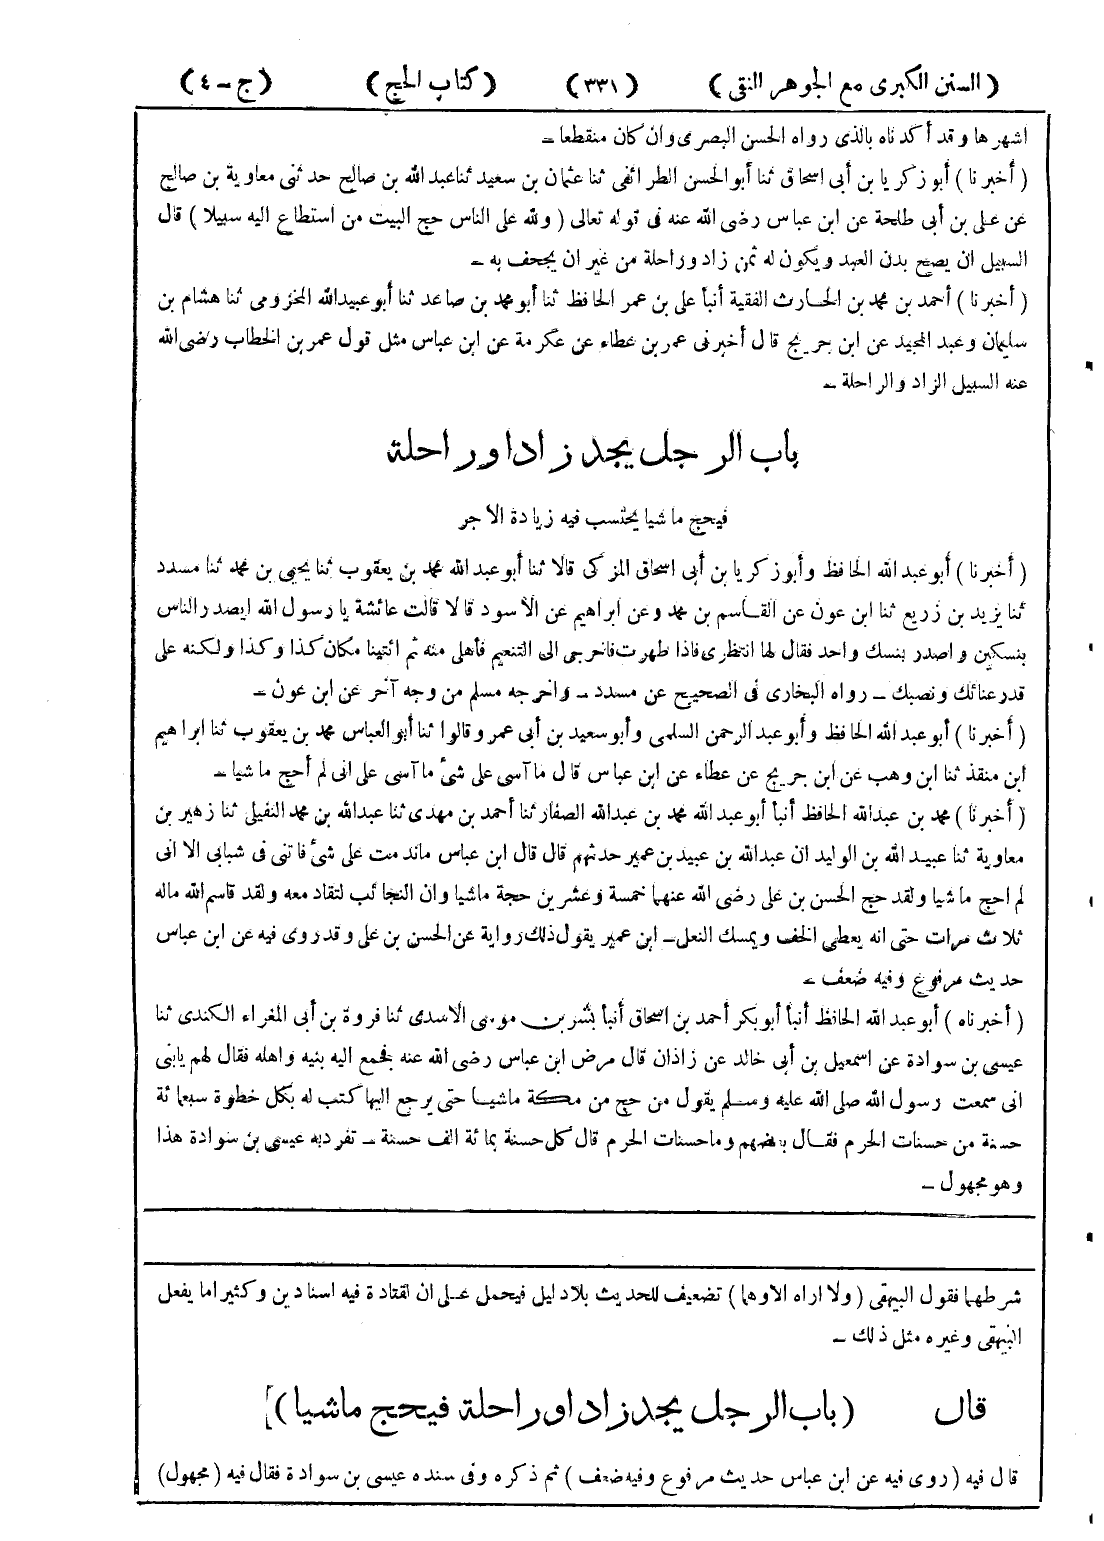 (السنن الكبرى مع الجوهر النقى) (٣٣١) (كتاب الحج) (ج - ٤)
اشهرها وقد أكدناه بالذى رواه الحسن البصرى وان كان منقطعا -
(أخبرنا) أبو زكريا بن أبى اسحاق ثنا أبو الحسن الطرائفى ثنا عثمان بن سعيد ثنا عبد الله بن صالح حدثنى معاوية بن صالح
عن على بن أبى طلحة عن ابن عباس رضى الله عنه فى قوله تعالى (ولله على الناس حج البيت من استطاع اليه سبيلا) قال
السبيل ان يصح بدن العبد ويكون له ثمن زاد وراحلة من غير ان يجحف به -
(أخبرنا) أحمد بن محمد بن الحارث الفقية أنبأ على بن عمر الحافظ ثنا أبو محمد بن صاعد ثنا أبو عبيدالله المخزومى ثنا هشام بن
سليمان وعبد المجيد عن ابن جريج قال أخبرنى عمر بن عطاء عن عكرمة عن ابن عباس مثل قول عمر بن الخطاب رضى الله
عنه السبيل الزاد والراحلة -
باب الرجل يجد زادا وراحلة
فيحج ماشيا يحتسب فيه زيادة الاجر
(أخبرنا) أبو عبد الله الحافظ وأبو زكريا بن أبى اسحاق المزكى قالا ثنا أبو عبد الله محمد بن يعقوب ثنا يحيى بن محمد ثنا مسدد
ثنا يزيد بن زريع ثنا ابن عون عن القاسم بن محمد وعن ابراهيم عن الأسود قالا قالت عائشة يا رسول الله ايصدر الناس
بنسكين واصدر بنسك واحد فقال لها انتظرى فاذا طهرت فاخرجى الى التنعيم فأهلى منه ثم ائتينا مكان كذا وكذا ولكنه على
قدر عنائك ونصبك - رواه البخارى فى الصحيح عن مسدد - واخرجه مسلم من وجه آخر عن ابن عون -
(أخبرنا) أبو عبد الله الحافظ وأبو عبد الرحمن السلمى وأبو سعيد بن أبى عمرو قالوا ثنا أبو العباس محمد بن يعقوب ثنا ابراهيم
ابن منقذ ثنا ابن وهب عن ابن جريج عن عطاء عن ابن عباس قال ما آسى على شئ ما آسى على انى لم أحج ماشيا -
(أخبرنا) محمد بن عبدالله الحافظ أنبأ أبو عبد الله محمد بن عبدالله الصفار ثنا أحمد بن مهدى ثنا عبدالله بن محمد النفيلى ثنا زهير بن
معاوية ثنا عبيد الله بن الوليد ان عبدالله بن عبيد بن عمير حدثهم قال قال ابن عباس ماندمت على شئ فاتنى فى شبابى الا انى
لم احج ماشيا ولقد حج الحسن بن على رضى الله عنهما خمسة وعشرين حجة ماشيا وان النجائب لتقاد معه ولقد قاسم الله ماله
ثلاث مرات حتى انه يعطى الخف ويمسك النعل - ابن عمير يقول ذلك رواية عن الحسن بن على وقد روى فيه عن ابن عباس
حديث مرفوع وفيه ضعف -
(أخبرناه) أبو عبد الله الحافظ أنبأ أبو بكر أحمد بن اسحاق أنبأ بشر بن موسى الاسدى ثنا فروة بن أبى المغراء الكندى ثنا
عيسى بن سوادة عن اسمعيل بن أبى خالد عن زاذان قال مرض ابن عباس رضى الله عنه فجمع اليه بنيه واهله فقال لهم يابنى
انى سمعت رسول الله صلى الله عليه وسلم يقول من حج من مكة ماشيا حتى يرجع اليها كتب له بكل خطوة سبعمائة
حسنة من حسنات الحرم فقال بعضهم وما حسنات الحرم قال كل حسنة بمائة الف حسنة - تفرد به عيسى بن سوادة هذا
وهو مجهول -
شرطهما فقول البيهقى (ولا اراه الا وهما) تضعيف للحديث بلا دليل فيحمل على ان لقتادة فيه اسنادين وكثيرا ما يفعل
البيهقى وغيره مثل ذلك -
قال (باب الرجل يجد زادا وراحلة فيحج ماشيا)]
قال فيه (روى فيه عن ابن عباس حديث مرفوع وفيه ضعف) ثم ذكره وفى سنده عيسى بن سوادة فقال فيه (مجهول)